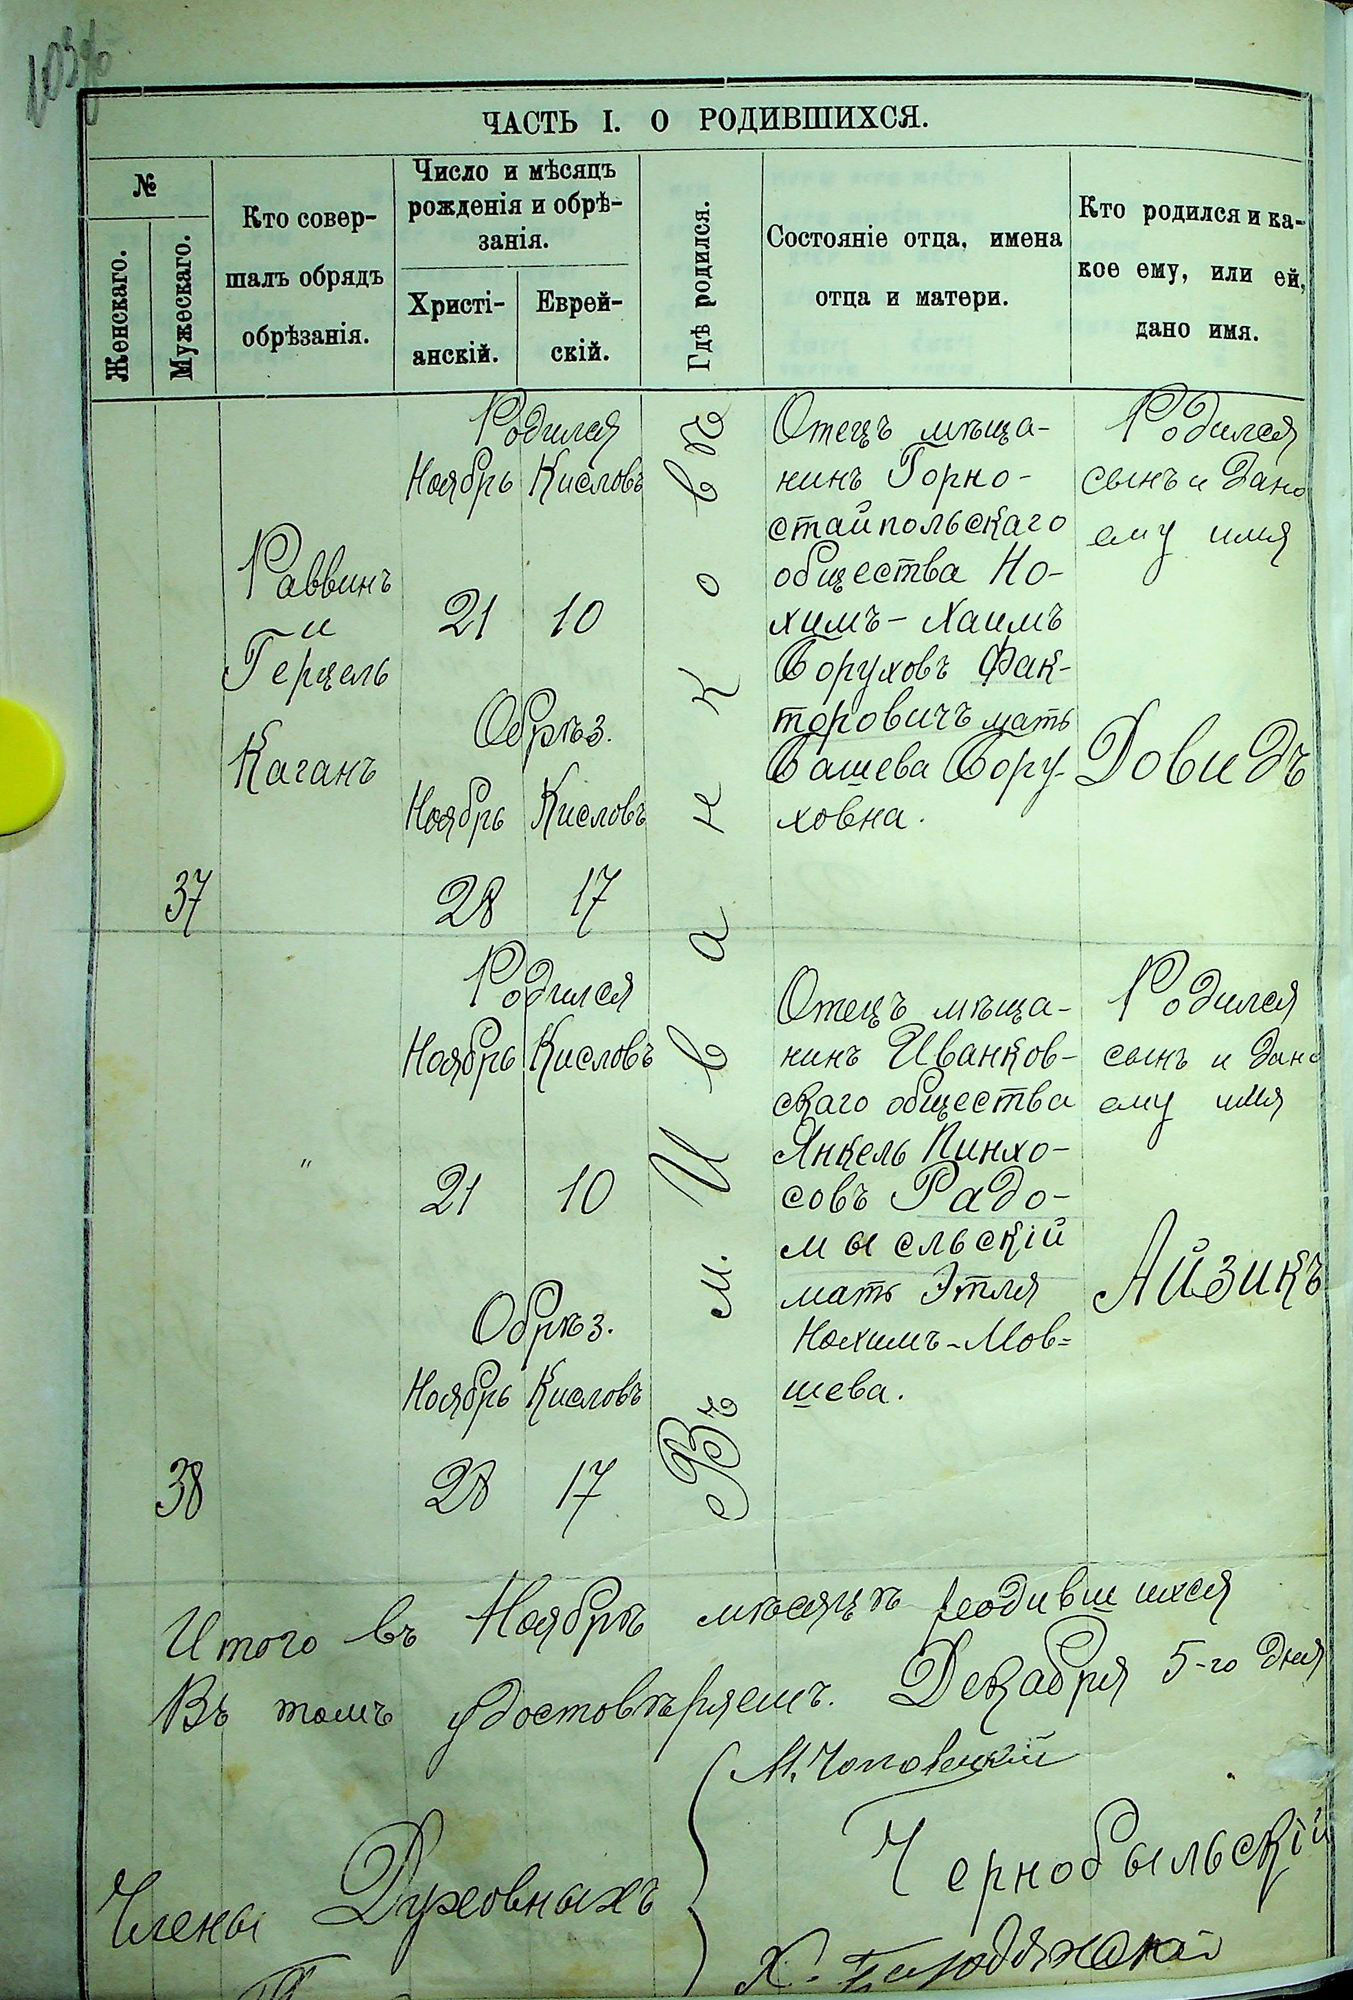 103
ЧАСТЬ I. О РОДИВШИХСЯ.
№
Женскаго.
Мужескаго.
Кто совер-
шалъ обрядъ
обрѣзанія.
Число и мѣсяцъ
рожденія и обрѣ-
занія.
Христі-
анскій.
Еврей-
скій.
Гдѣ родился.
Состояніе отца, имена
отца и матери.
Кто родился и ка-
кое ему, или ей,
дано имя.
37
Раввинъ
и
Герцель
Каганъ
Родился
Ноябрь Кисловъ
21 10
Обрѣз.
Ноябрь Кисловъ
28 17
Въ м. Иванковѣ
Отецъ мѣща-
нинъ Горно-
стайпольскаго
общества Но-
химъ-Хаимъ
Боруховъ Фак-
торовичъ мать
Башева Бору-
ховна.
Родился
сынъ и дано
ему имя
Довидъ
38
"
Родился
Ноябрь Кисловъ
21 10
Обрѣз.
Ноябрь Кисловъ
28 17
Отецъ мѣща-
нинъ Иванков-
скаго общества
Янкель Пинхо-
совъ Радо-
мысльскій
мать Этля
Нохимъ-Мов-
шева.
Родился
сынъ и дано
ему имя
Айзикъ
Итого въ Ноябрѣ мѣсяцѣ родившихся
Въ томъ удостовѣряемъ. Декабря 5-го дня
Члены Духовныхъ
М. Чоповецкій
Чернобыльскій
Х. Бородянскій